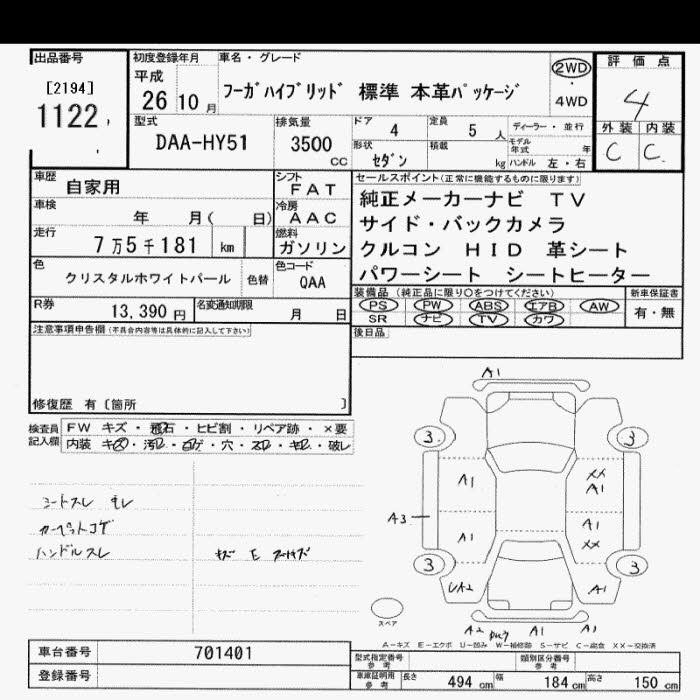 出品番号
[2194]
1122
初度登録年月
平成
26 10 月
車名・グレード
フーガハイブリッド 標準 本革パッケージ
2WD
・
4WD
評価点
4
外装 内装
C C
型式
DAA-HY51
排気量
3500
CC
ドア 4
定員 5 人
ディーラー・並行
形状
セダン
積載
kg
モデル年式 年
ハンドル 左・右
車歴
自家用
シフト
FAT
車検
年 月( 日)
冷房
AAC
走行
7万5千181 km
燃料
ガソリン
色
クリスタルホワイトパール
色替
色コード
QAA
R券
13,390 円
名変通知期限
月 日
セールスポイント(正常に機能するものに限ります)
純正メーカーナビ TV
サイド・バックカメラ
クルコン HID 革シート
パワーシート シートヒーター
装備品(純正品に限り○をつけてください)
PS PW ABS エアB AW
SR ナビ TV カワ
新車保証書
有・無
後日品
注意事項申告欄(不具合内容等は具体的に記入して下さい)
修復歴 有〔箇所 〕
検査員
記入欄
FW キズ・飛石・ヒビ割・リペア跡・×要
内装 キズ・汚レ・コゲ・穴・スレ・キレ・破レ
シートスレ
カーペットコゲ
ハンドルスレ
A1
3
3
A1
XX
A1
A3
A1
A1
XX
3
3
UA2
A1
スペア
A2
A1
A1
A-キズ E-エクボ U-凹み W-補修跡 S-サビ C-腐食 XX-交換済
車台番号
701401
登録番号
型式指定番号
参考
類別区分番号
参考
車庫証明用
参考
長さ 494 cm
幅 184 cm
高さ 150 cm